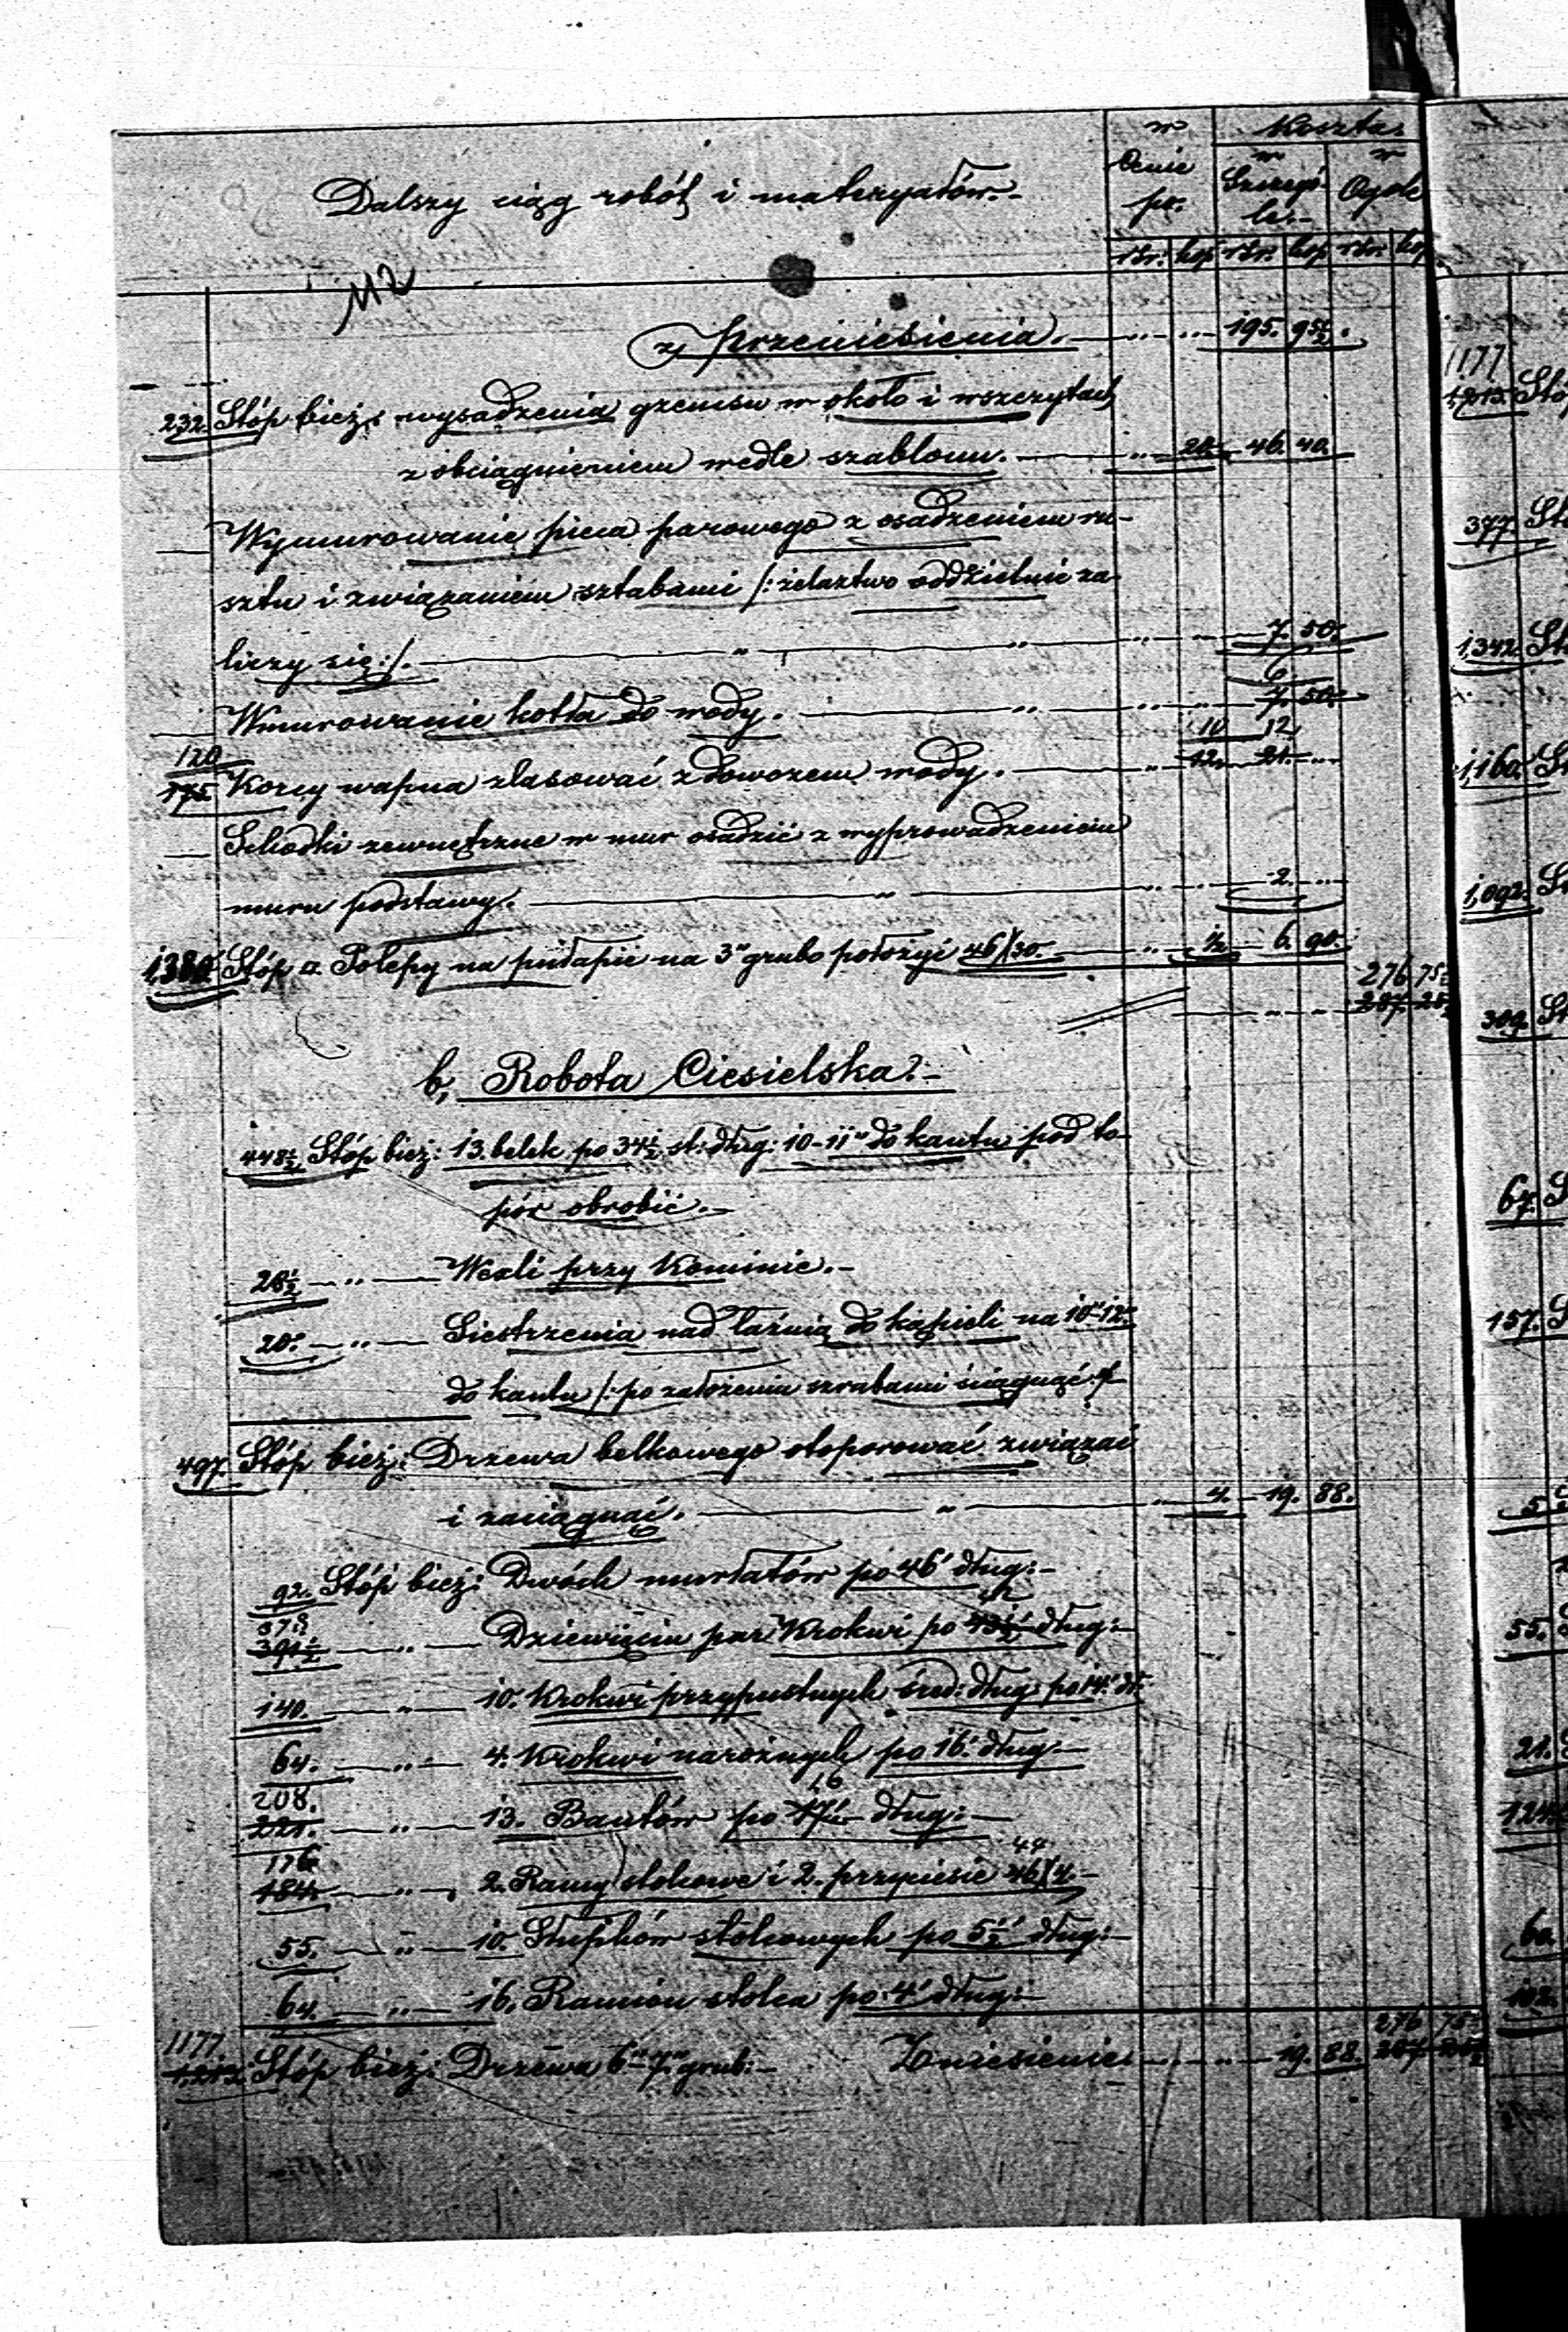 Dalszy ciąg robót i materyałów.-
w Cenie po. | Koszta. w Szczególe.- | w Ogóle
rsr: | kop | rsr: | kop | rsr: | kop
112
z Przeniesienia. — 195. 95½.
232. Stóp bież: wysadzenia gzemsu w około i wszczytach
z obciągnieniem wedle szablonu. — 20. 46. 40.
Wymurowanie pieca parowego z osadzeniem ru-
sztu i związaniem sztabami /:żelaztwo oddzielnie za-
liczy się:/. — 7. 50.
6
Wmurowanie kotła do wody. — 7. 50.
120 10 12
175 Korcy wapna zlasować z dowozem wody. — 12. 21.
Schodki zewnętrzne w mur osadzić z wyprowadzeniem
muru podstawy. — 2.
1,380. Stóp □ Polepy na pułapie na 3" grubo położyć 46/30. — ½ 6. 90.
276 75½
287. 25½
b, Robota Ciesielska.-
448½ Stóp bież: 13. belek po 34½ st: dług: 10-11" do kantu pod to-
pór obrobić.-
28½ — " — Wexli przy Kominie.-
20. — " — Siestrzenia nad łaźnią do kąpieli na 10"-12"
do kantu /:po założeniu szrabami ściągnąć:/-
497. Stóp bież: Drzewa belkowego otoporować związać
i zaciągnąć. — 4. 19. 88.
92. Stóp bież: Dwóch murłatów po 46' dług:-
378 42
391½ — " — Dziewięciu par Krokwi po 43½' dług:-
140. — " — 10. Krokwi przypustnych śred: dług: po 14' dł:
64. — " — 4. Krokwi narożnych po 16' dług-
208. 16
221. — " — 13. Bantów po 17' dług:-
176 44
184 — " — 2. Ramy stolcowe i 2. przyciesie 46/4.-
55. — " — 10. Słupków stolcowych po 5½' dług:-
64. — " — 16. Ramion stolca po 4' dług:-
1177. 276 75½
1,212½ Stóp bież: Drzewa 6"-7" grub:- Zniesienie. — 19. 88. 287 25½
1177
1,213. Sto
377. St
1,342. St
1,160. St
1,092. St
309. St
64. S
157. S
5
55.
21.
124.
60.
102.